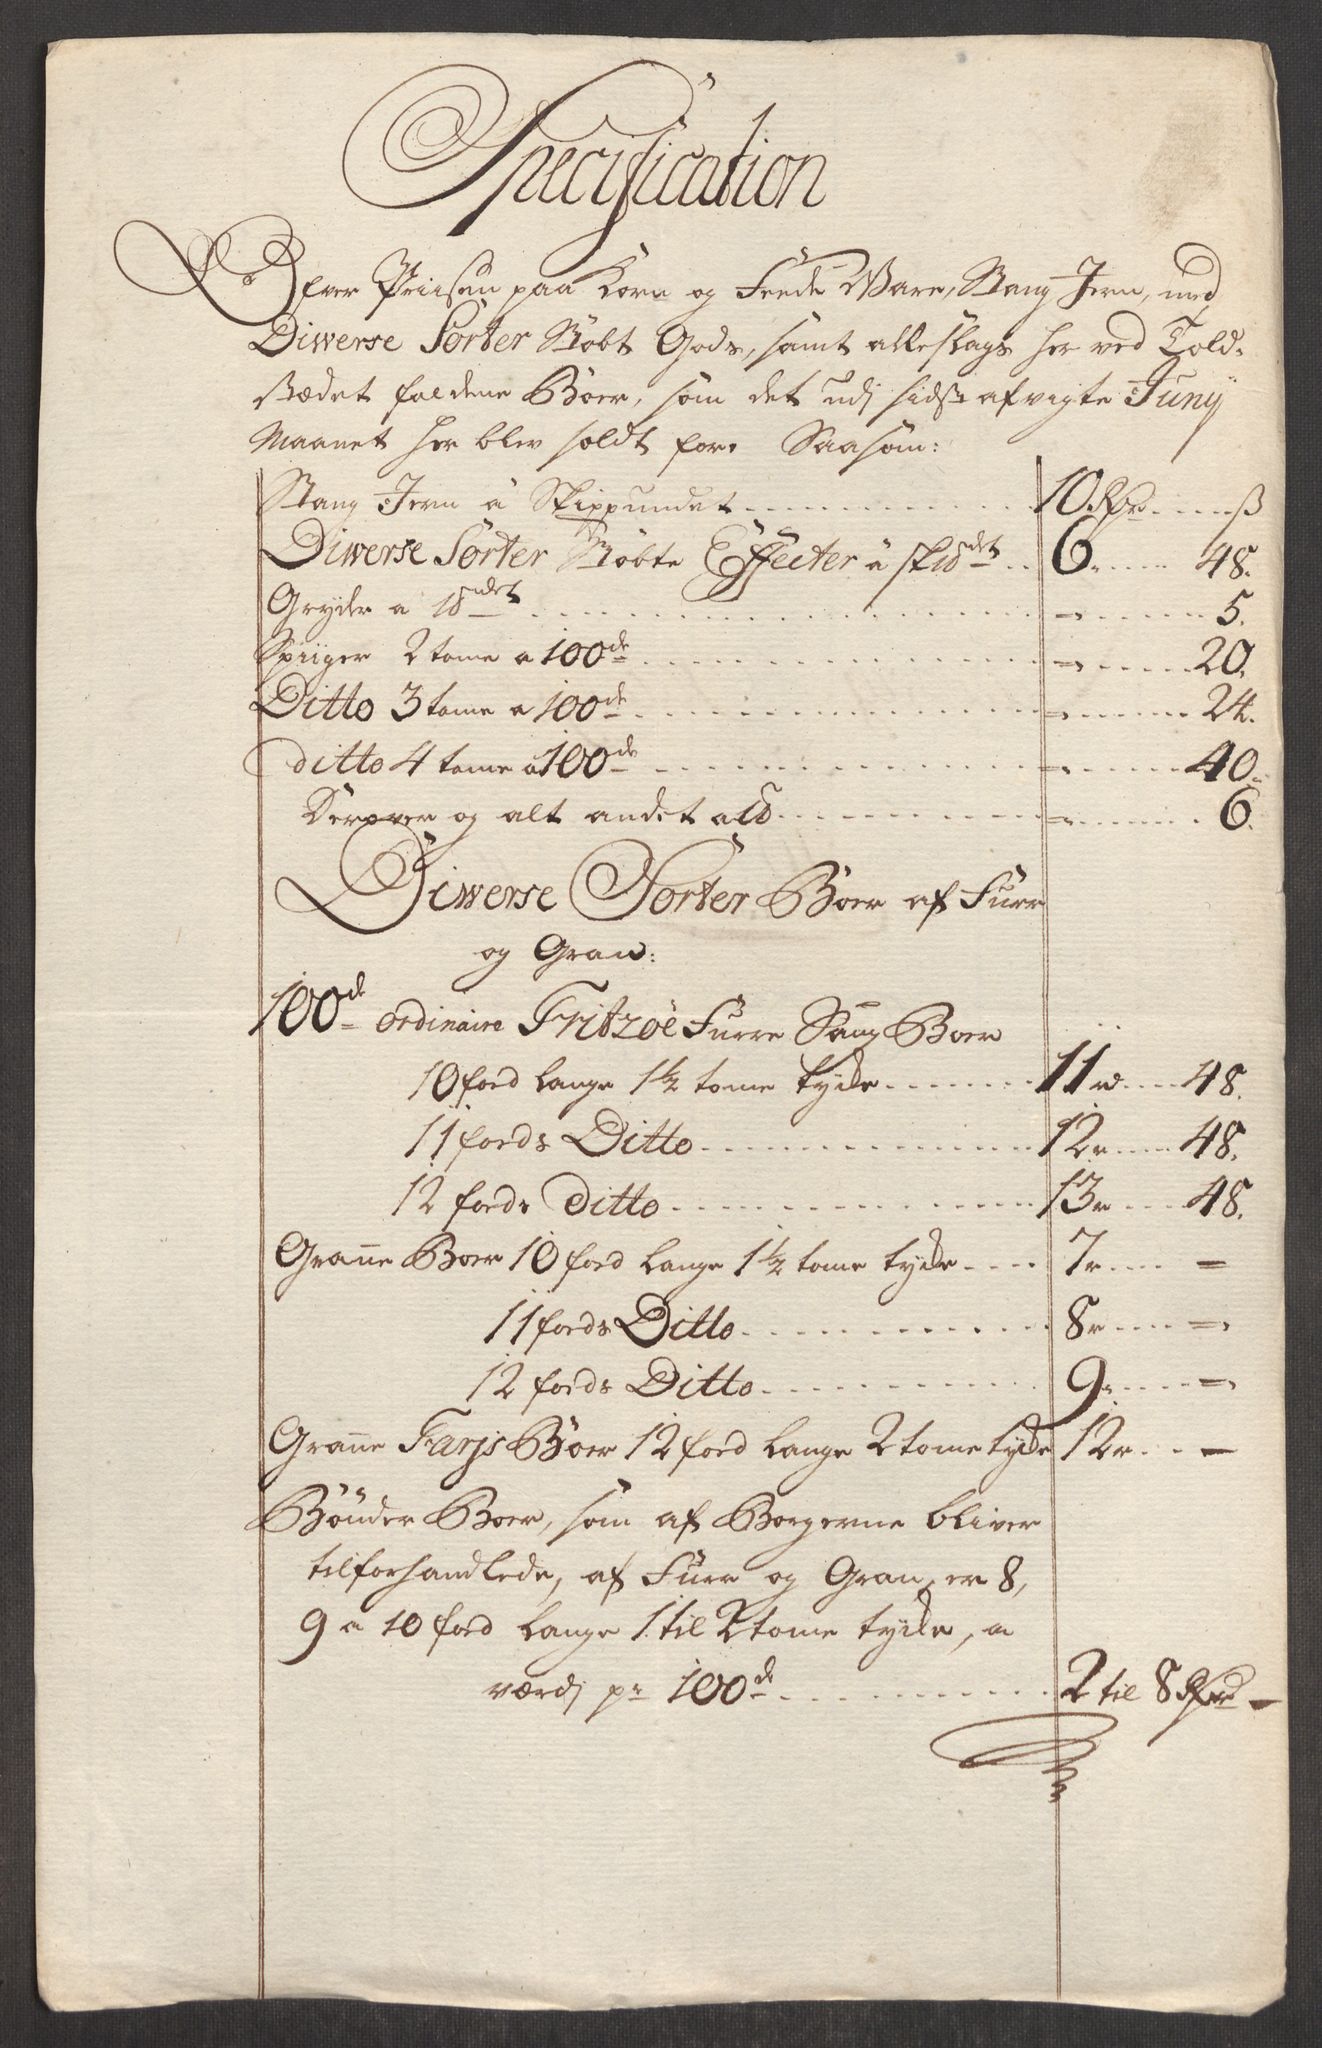 Specification
Ofver Priisen paa Korn og Feede Vare, Stang Jern, med
Diwerse Sorter Støbt Gods, samt alleslags her ved Told-
stædet faldene Böer, som det udj sidst afvigte Junij
Maanet her blev soldt for. Saasom:
Stang Jern â Skippundet 10 Rdr ß
Diwerse Sorter Støbte Effecter â sk℔det 6. 48.
Gryder a ℔det = 5.
Spiiger 2 tome a 100de = 20.
Ditto 3 tome a 100de = 24.
ditto 4 tome a 100de = 40.
og alt andet a ℔ = 6.
Diwerse Sorter Böer af Furr
og Gran:
100de ordinaire Fritzöe Furre Saug Boer
10 foed lange 1½ tome tycke 11 r 48.
11 foeds Ditto 12 r 48.
12 foeds Ditto 13 r 48.
Granne Boer 10 foed lange 1½ tome tycke 7 r =
11 foeds Ditto 8 r =
12 foeds Ditto 9. =
Granne Farjs Böer 12 foed lange 2 tome tycke 12 r -
Bönder Boer, som af Borgerne bliver
tilforhandlede, af Furr og Gran, er 8,
9 a 10 foed lange 1 til 2 tome tycke, a
værdj pr 100de 2 til 8 Rdr -